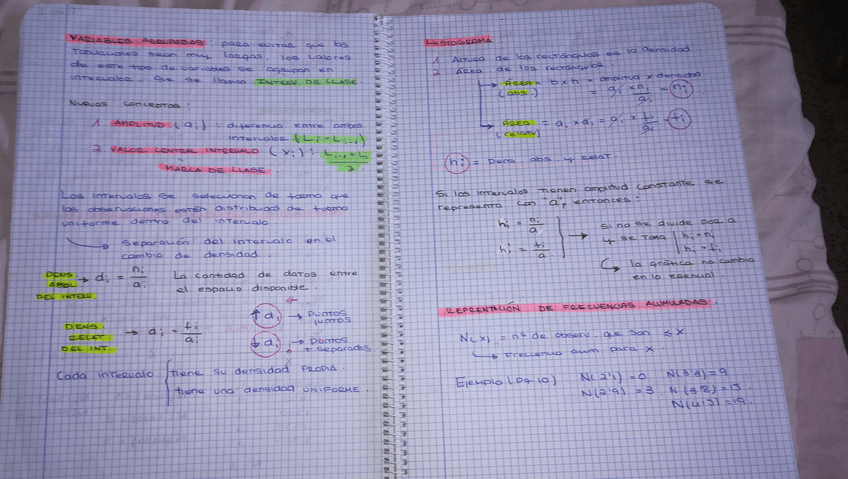 VARIABLES AGRUPADAS: para evitar que las
tabulaciones sean muy largas los valores
de este tipo de variables se agrupan en
intervalos que se llaman INTERV DE CLASE.
Nuevos conceptos:
1 AMPLITUD (ai): diferencia entre ambos
intervalos (Li - Li-1)
2 VALOR CENTRAL INTERVALO (xi): Li-1 + Li / 2
MARCA DE CLASE.
Los intervalos se seleccionan de forma que
las observaciones estén distribuidas de forma
uniforme dentro del intervalo
→ Separación del intervalo en el
cambio de densidad.
DENS ABSOL DEL INTERV → di = ni / ai La cantidad de datos entre
el espacio disponible.
DENS RELAT DEL INT → di = fi / ai
↑ di → Puntos juntos
↓ di → Puntos + separados
Cada intervalo { tiene su densidad PROPIA.
tiene una densidad UNIFORME.
HISTOGRAMA
1 Altura de los rectángulos es la densidad
2 Área de los rectángulos.
→ Área (abs) = b x h = amplitud x densidad
= ai x ni / ai = ni
→ Área (relat) = ai x di = ai x fi / ai = fi
hi = Dens. abs y relat.
Si los intervalos tienen amplitud constante se
representa con "a", entonces:
hi = ni / a
hi = fi / a
→ si no se divide por a
y se toma | hi = ni
hi = fi
→ la gráfica no cambia
en lo esencial
REPRENTACIÓN DE FRECUENCIAS ACUMULADAS.
N(x) = nº de observ que son ≤ x
→ Frecuencia acum para x
Ejemplo (P4 10) N(2'1) = 0 N(3'3) = 9
N(2'9) = 3 N(3'8) = 15
N(4'3) = 19.